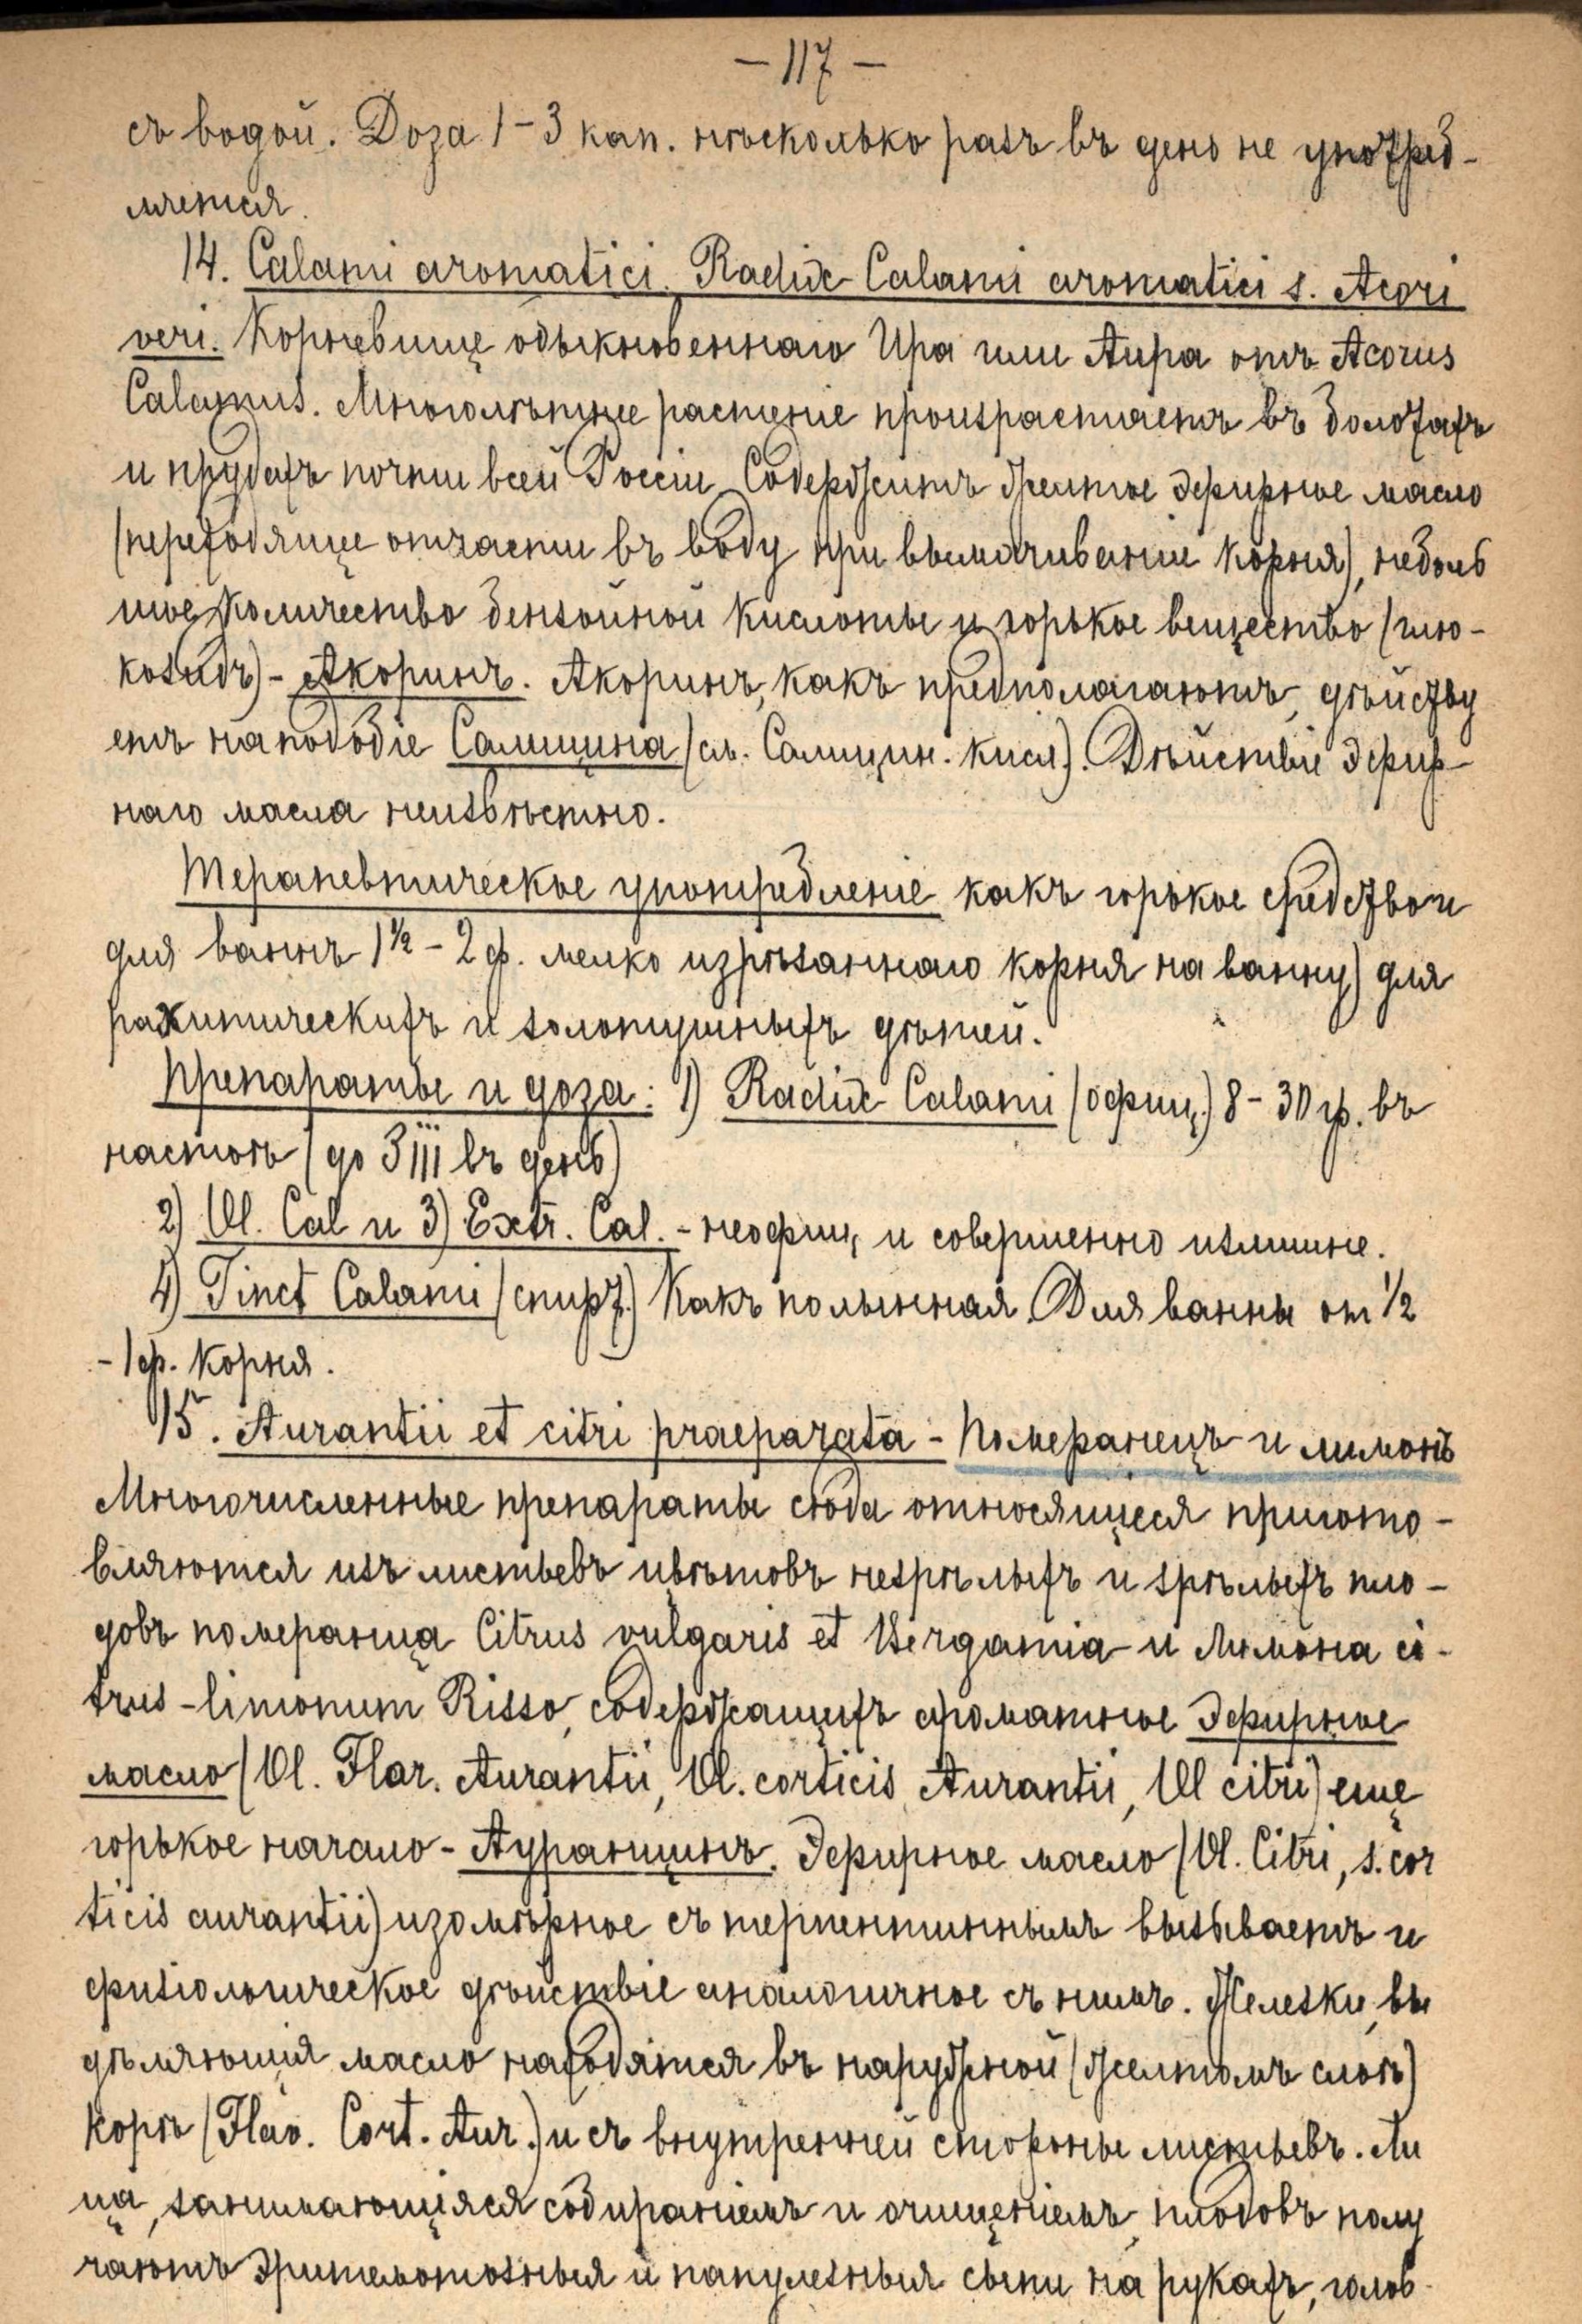 — 117 —
съ водой. Доза 1–3 кап. нѣсколько разъ въ день не употреб-
ляется.
14. Calami aromatici. Radix Calami aromatici s. Acori
veri. Корневище обыкновеннаго Ира или Аира отъ Acorus
Calamus. Многолѣтнее растеніе произрастаетъ въ болотахъ
и прудахъ почти всей Россіи. Содержитъ желтое эфирное масло
(переходящее отчасти въ воду при вымачиваніи корня), неболь
шое количество бензойной кислоты и горькое вещество (глю-
козидъ) - Акоринъ. Акоринъ, какъ предполагаютъ, дѣйству
етъ наподобіе Салицина (см. Салицин. кисл.). Дѣйствіе эфир-
наго масла неизвѣстно.
Терапевтическое употребленіе какъ горькое средство и
для ваннъ 1½ – 2 ф. мелко изрѣзаннаго корня на ванну) для
рахитическихъ и золотушныхъ дѣтей.
Препараты и доза: 1) Radix Calami (офиц.) 8–30 гр. въ
настоѣ (до ℥iii въ день)
2) Ol. Cal и 3) Extr. Cal. - неофиц, и совершенно излишне.
4) Tinct Calami (спирт.) Какъ полынная. Для ванны от ½
- 1 ф. корня.
15. Aurantii et citri praeparata - Померанецъ и лимонъ
Многочисленные препараты сюда относящіеся пригото-
вляются изъ листьевъ цвѣтовъ незрѣлыхъ и зрѣлыхъ пло-
довъ померанца Citrus vulgaris et Bergamia и Лимона ci-
trus - limonum Risso, содержащихъ ароматное эфирное
масло (Ol. Flor. Aurantii, Ol. corticis Aurantii, Ol citri) еще
горькое начало - Ауранцинъ. Эфирное масло (Ol. Citri, s. cor
ticis aurantii) изомѣрное съ терпентиннымъ вызываетъ и
физіологическое дѣйствіе аналогичное съ нимъ. Железки, вы
дѣляющія масло находятся въ наружной (желтомъ слоѣ)
корѣ (Flav. Cort. Aur.) и съ внутренней стороны листьевъ. Ли
ца, занимающіяся собираніемъ и очищеніемъ плодовъ полу
чаютъ эритематозныя и папулезныя сыпи на рукахъ, голов-